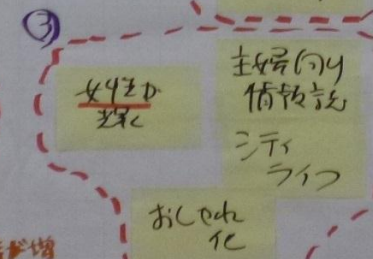 ③
女性が
輝く
主婦向け
情報誌
シティ
ライフ
おしゃれ
化
増